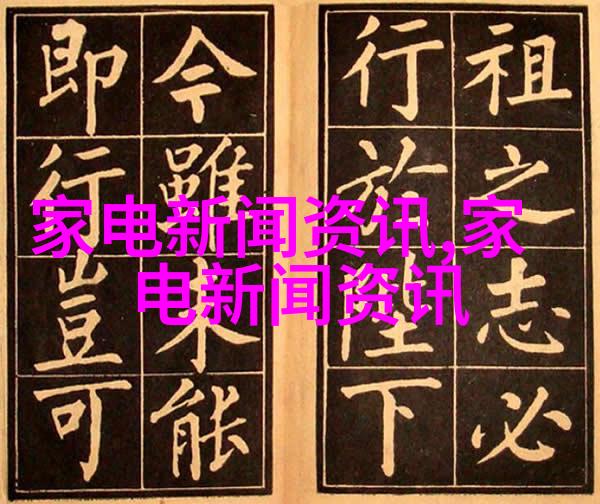 祖之志必
行於陛下
今雖未能
即行豈可
家电新闻资讯,家
电新闻资讯